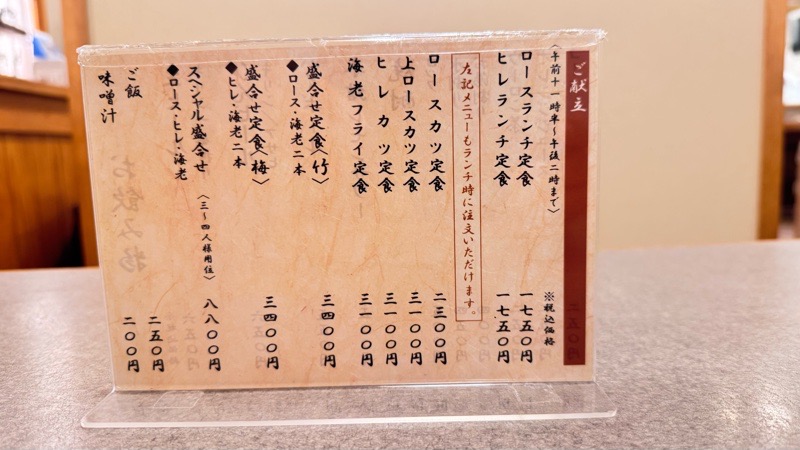 ご献立
〈午前十一時半〜午後二時まで〉
※税込価格
ロースランチ定食 一七五〇円
ヒレランチ定食 一七五〇円
左記メニューもランチ時に注文いただけます。
ロースカツ定食 二三〇〇円
上ロースカツ定食 三一〇〇円
ヒレカツ定食 三一〇〇円
海老フライ定食 三一〇〇円
盛合せ定食〈竹〉 三四〇〇円
◆ロース・海老二本
盛合せ定食〈梅〉 三四〇〇円
◆ヒレ・海老二本
スペシャル盛合せ 〈三〜四人様用位〉 八八〇〇円
◆ロース・ヒレ・海老
ご飯 二五〇円
味噌汁 二〇〇円
お飲み物